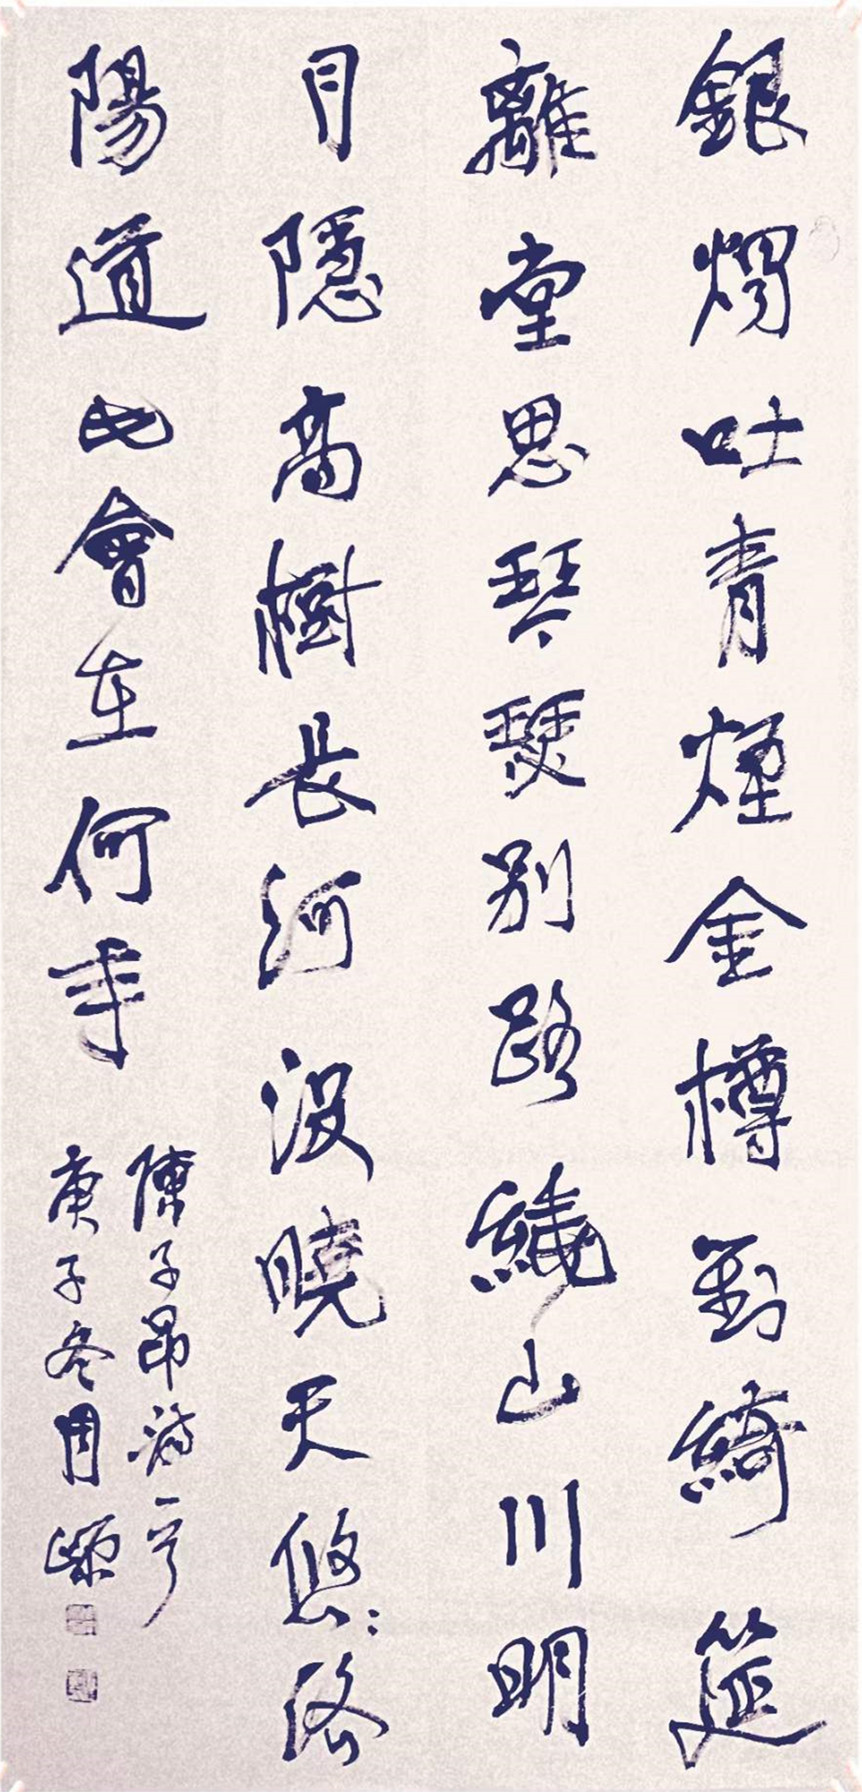 銀燭吐青煙金樽對綺筵
離堂思琴瑟別路繞山川明
月隱高樹長河沒曉天悠〻洛
陽道此會在何年
陳子昂詩一首
庚子冬周